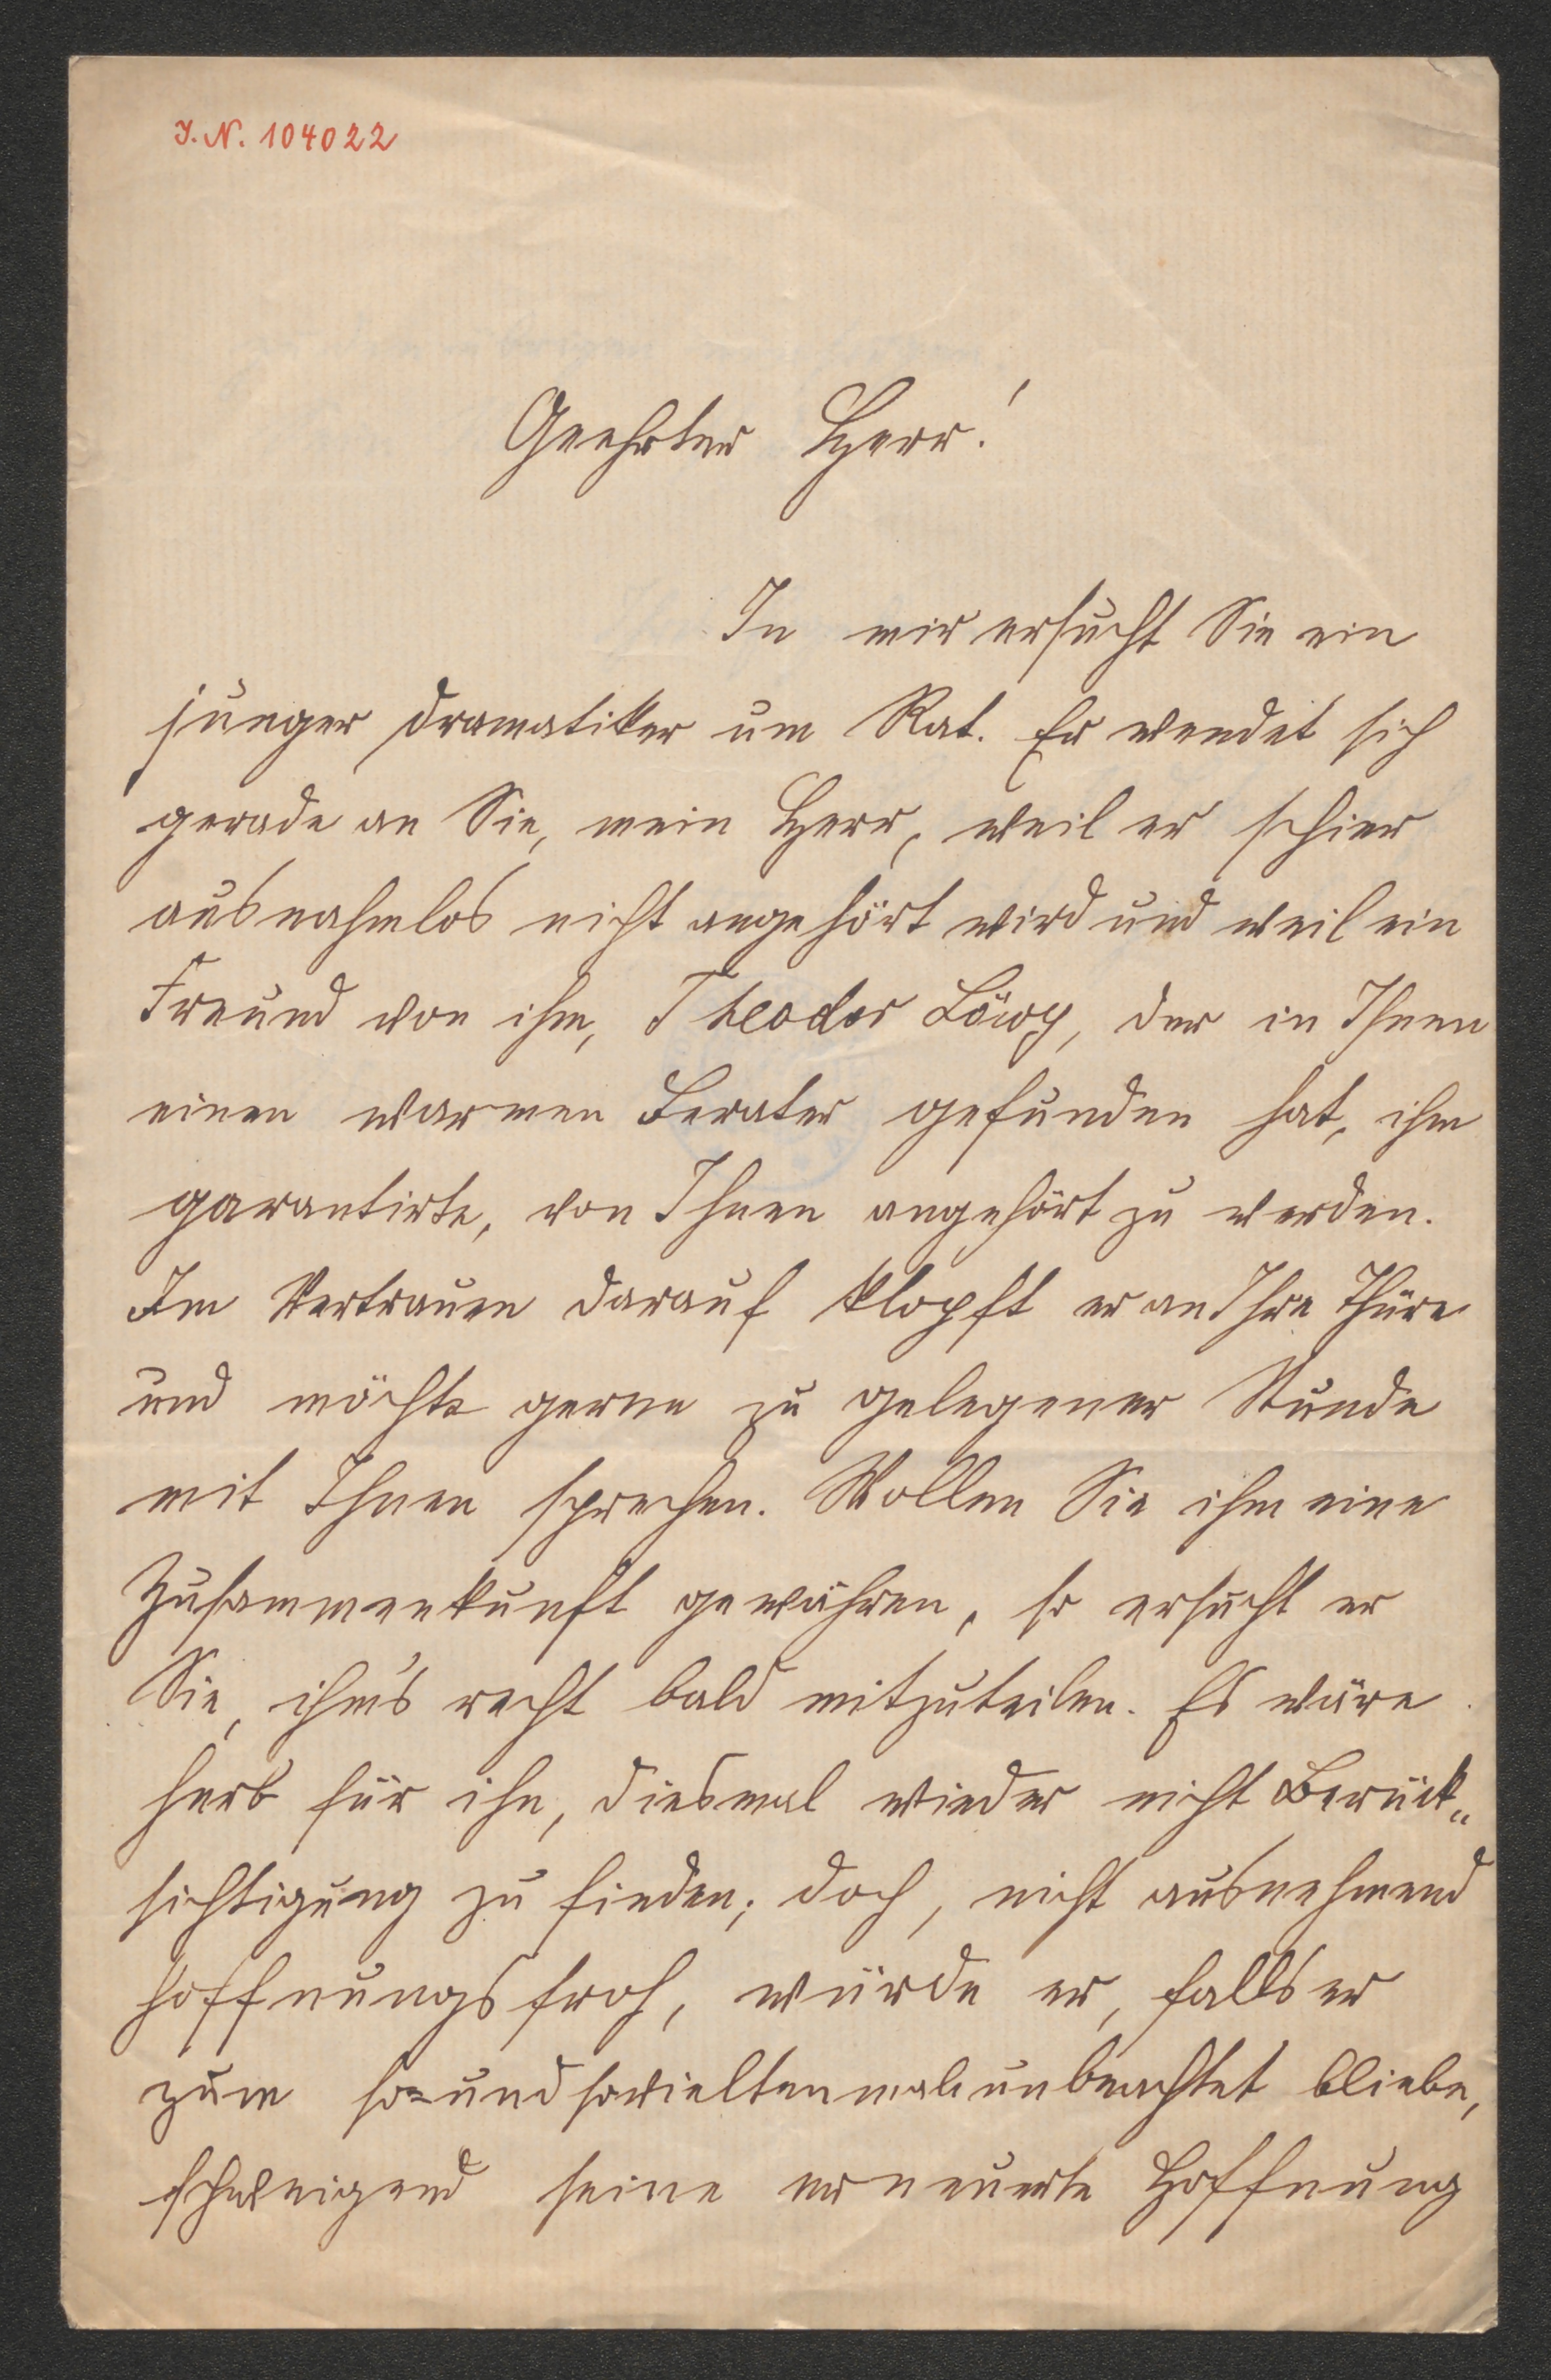 I.N. 104022
Geehrter Herr!
In mir ersucht Sie ein
junger Dramatiker um Rat. Er wendet sich
gerade an Sie, mein Herr, weil er schier
ausnahmslos nicht angehört wird und weil ein
Freund von ihm, Theodor Löwy, der in Ihnen
einen warmen Berater gefunden hat, ihm
garantirte, von Ihnen angehört zu werden.
Im Vertrauen darauf klopft er an Ihre Thüre
und möchte gerne zu gelegener Stunde
mit Ihnen sprechen. Wollen Sie ihm eine
Zusammenkunft gewähren, so ersucht er
Sie, ihm's recht bald mitzuteilen. Es wäre
herb für ihn, diesmal wieder nicht Berück„
sichtigung zu finden; doch, nicht ausnehmend
hoffnungsfroh, würde er, falls er
zum so=undsovieltenmale unbeachtet bliebe,
schweigend seine erneuerte Hoffnung